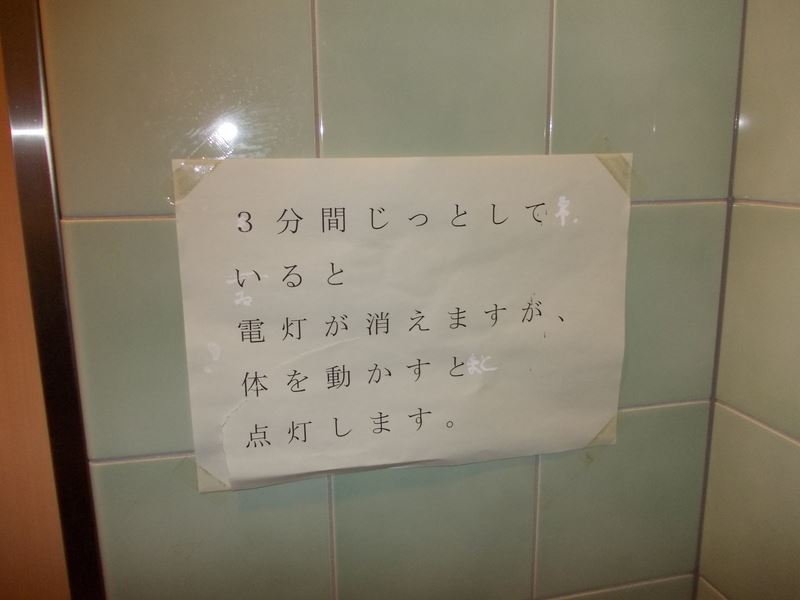 3分間じっとして
いると
電灯が消えますが、
体を動かすと
点灯します。